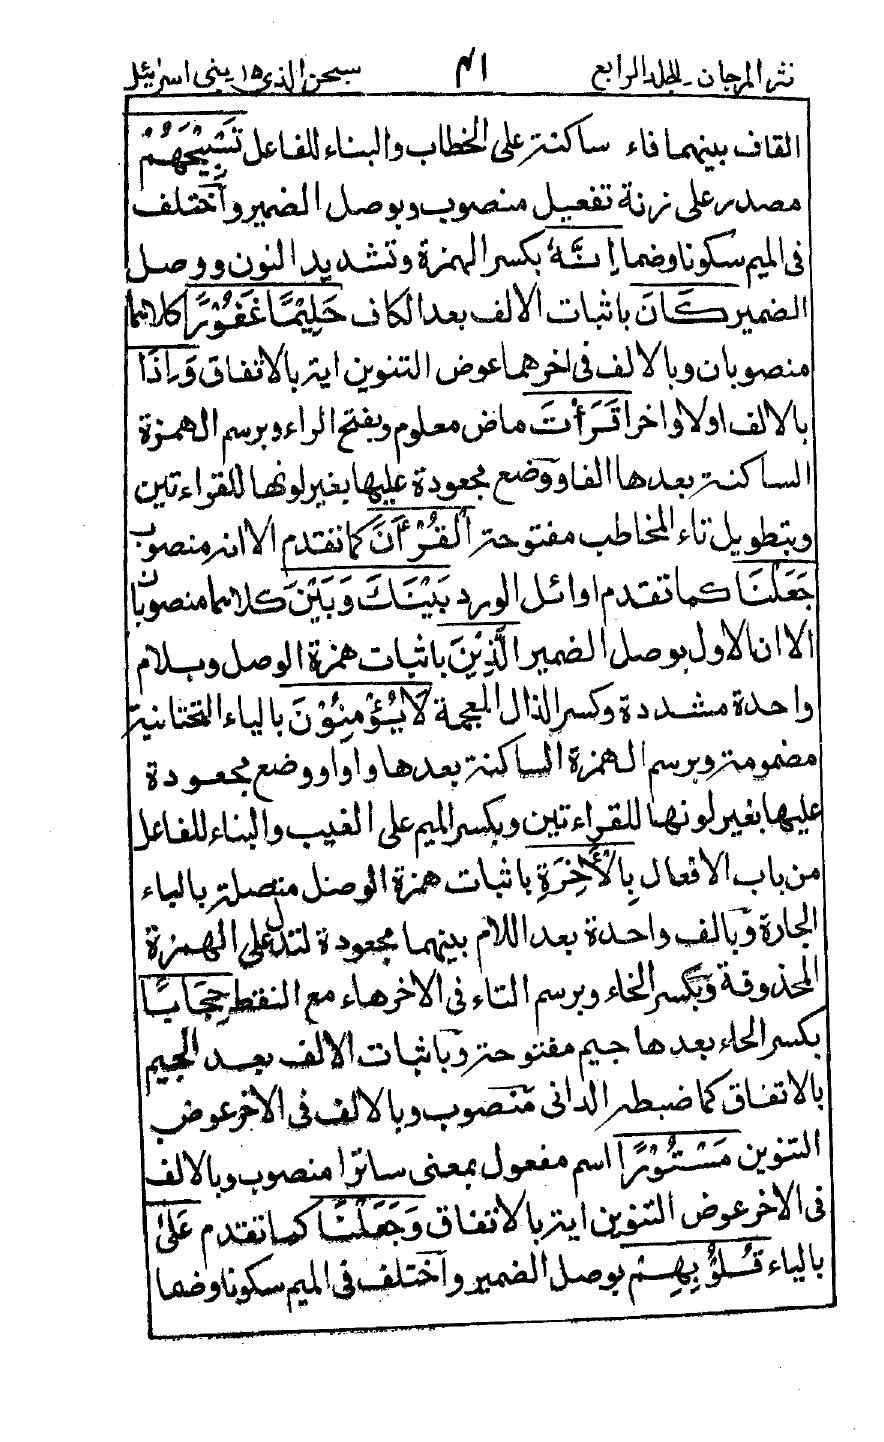 نثر المرجان ـ المجلد الرابع
سبحن الذى ١٥ بنى اسرئيل
القاف بينهما فاء ساكنة على الخطاب والبناء للفاعل تَسْبِيْحَهُمْ
مصدر على زنة تفعيل منصوب وبوصل الضمير واختلف
فى الميم سكونا وضما اِنَّهٗ بكسر الهمزة وتشديد النون ووصل
الضمير كَانَ باثبات الالف بعد الكاف حَلِيْمًا غَفُوْرًا كلاهما
منصوبان وبالالف فى اخرهما عوض التنوين اية بالاتفاق وَاِذَا
بالالف اولا واخرا قَرَأْتَ ماض معلوم وبفتح الراء وبرسم الهمزة
الساكنة بعدها الفا ووضع مجعودة عليها بغير لونها للقراءتين
وبتطويل تاء المخاطب مفتوحة الْقُرْأٰنَ كما تقدم الا انه منصوب
جَعَلْنَا كما تقدم اوائل الورد بَيْنَكَ وَبَيْنَ كلاهما منصوبان
الا ان الاول بوصل الضمير الَّذِيْنَ باثبات همزة الوصل وبلام
واحدة مشددة وكسر الذال المعجمة لَايُؤْمِنُوْنَ بالياء التحتانية
مضمومة وبرسم الهمزة الساكنة بعدها واوا ووضع مجعودة
عليها بغير لونها للقراءتين وبكسر الميم على الغيب والبناء للفاعل
من باب الافعال بِالْاٰخِرَةِ باثبات همزة الوصل متصلة بالباء
الجارة وبالف واحدة بعد اللام بينهما مجعودة لتدل على الهمزة
المحذوفة وبكسر الخاء وبرسم التاء فى الاخر هاء مع النقط حِجَابًا
بكسر الحاء بعدها جيم مفتوحة وباثبات الالف بعد الجيم
بالاتفاق كما ضبطه الدانى منصوب وبالالف فى الاخر عوض
التنوين مَسْتُوْرًا اسم مفعول بمعنى ساترا منصوب وبالالف
فى الاخر عوض التنوين اية بالاتفاق وَجَعَلْنَا كما تقدم عَلٰى
بالياء قُلُوْبِهِمْ بوصل الضمير واختلف فى الميم سكونا وضما